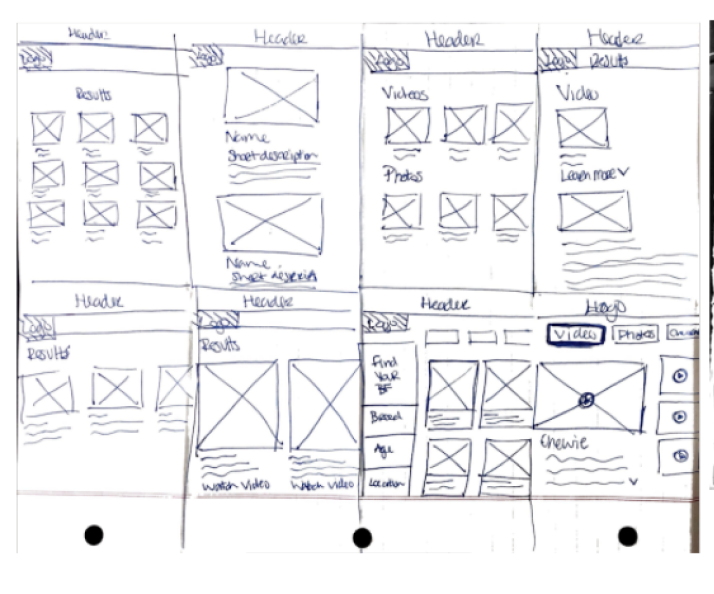 Header
Logo
Results
Header
Logo
Name
Short description
Name
Short descrip
Header
Logo
Videos
Photos
Header
Logo
Results
Video
Learn more
Header
Logo
Results
Header
Logo
Results
Watch Video
Watch video
Header
Logo
Find
Your
BF
Breed
Age
Location
Video
Photos
Chewie